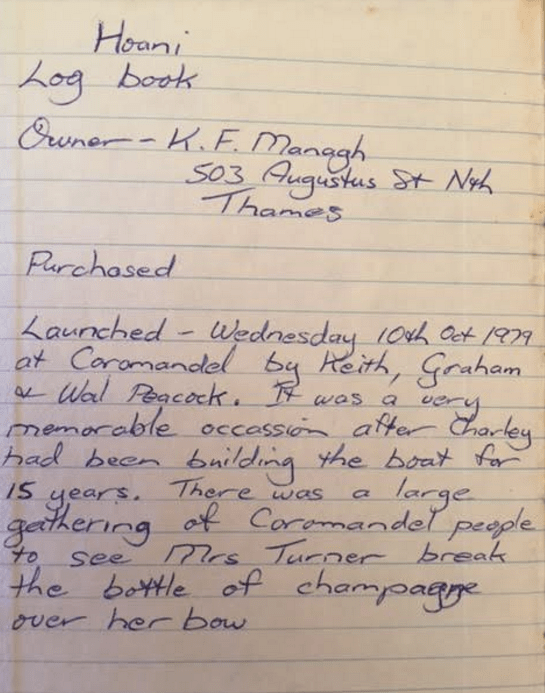 Hoani
Log book
Owner - K. F. Managh
503 Augustus St Nth
Thames
Purchased
Launched - Wednesday 10th Oct 1979
at Coromandel by Keith, Graham
& Wal Peacock. It was a very
memorable occassion after Charley
had been building the boat for
15 years. There was a large
gathering of Coromandel people
to see Mrs Turner break
the bottle of champagne
over her bow